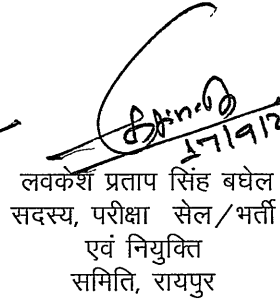 17/9/2
लवकेश प्रताप सिंह बघेल
सदस्य, परीक्षा सेल/भर्ती
एवं नियुक्ति
समिति, रायपुर